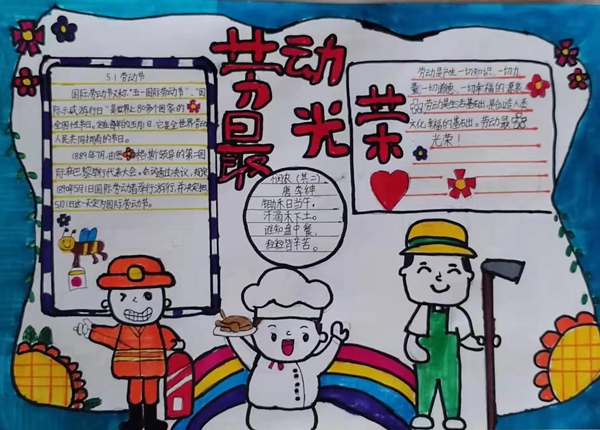 劳动
最光荣
5.1 劳动节
国际劳动节又称"五一国际劳动节"、"国
际示威游行日"是世界上80多个国家的
全国性节日。定在每年的五月1日。它是全世界劳动
人民共同拥有的节日。
1889年7月,由恩格斯领导的第二国
际在巴黎举行代表大会。会议通过决议,规定
1890年5月1日国际劳动者举行游行,并决定把
5月1日这一天定为国际劳动节。
悯农(其二)
唐 李绅
锄禾日当午,
汗滴禾下土。
谁知盘中餐,
粒粒皆辛苦。
劳动是产生一切知识、一切力
量、一切道德、一切幸福的源泉
劳动是生活基础,是创造人类
文化幸福的基础。劳动最
光荣!